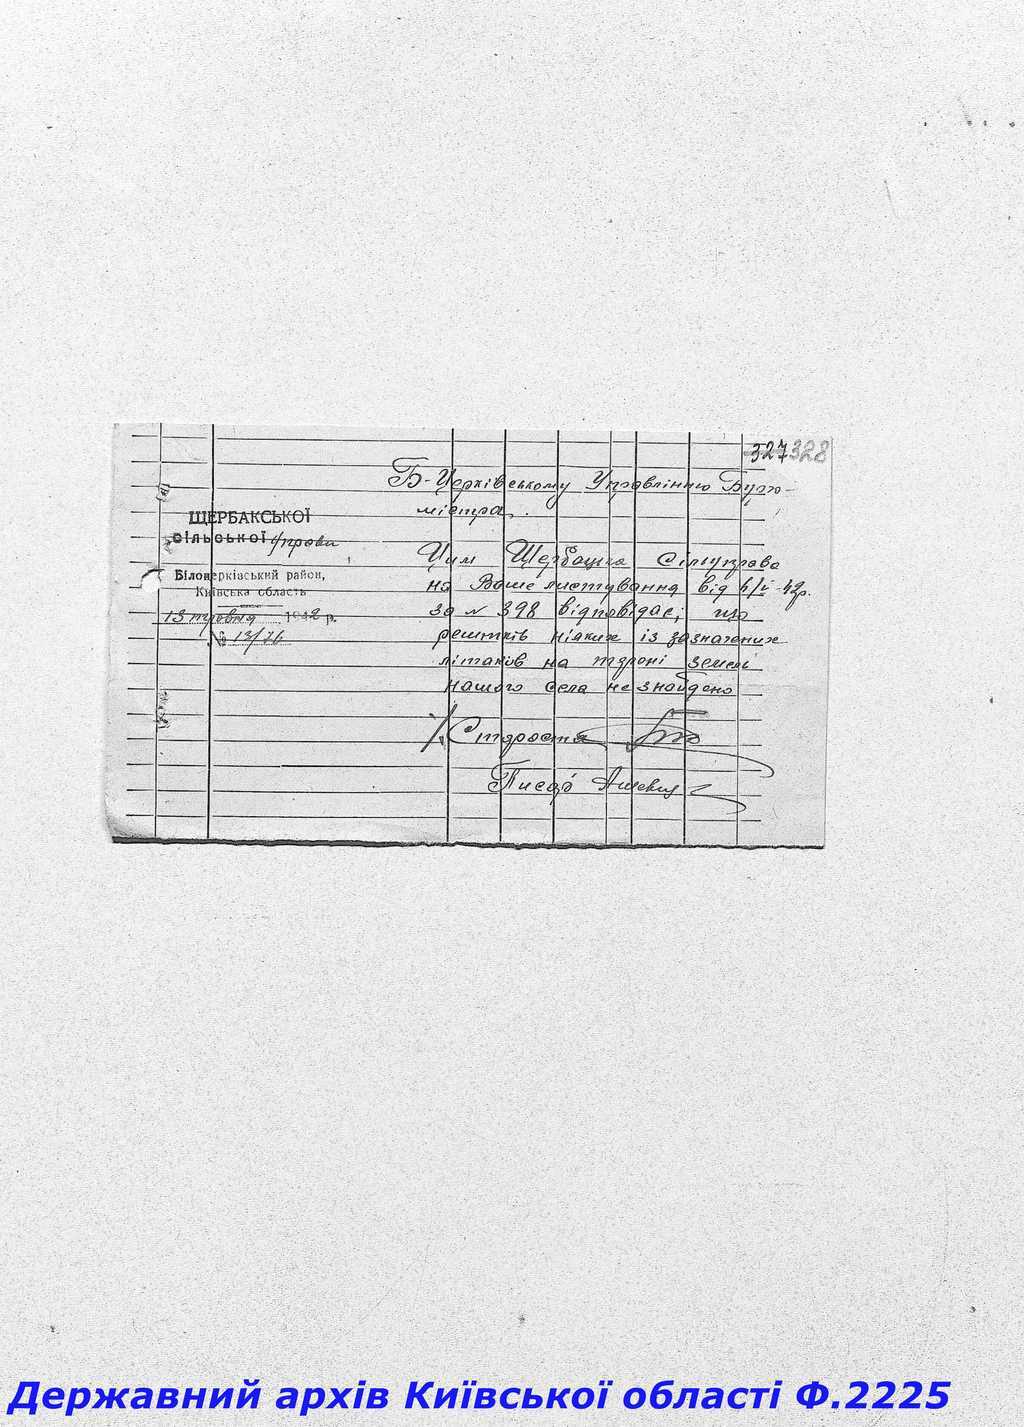 327 328
Б-Церківському Управлінню Бурго-
містра.
ЩЕРБАКСЬКОЇ
сільської управи
Білоцерківський район,
Київська область
13 травня 1942 р.
№ 13/76
Цим Щербацька Сільуправа
на Ваше листування від 4/V-42р.
за № 398 відповідає, що
рештків ніяких із зазначених
літаків на терені земель
нашого села не знайдено
Староста
Писар
Державний архів Київської області Ф.2225